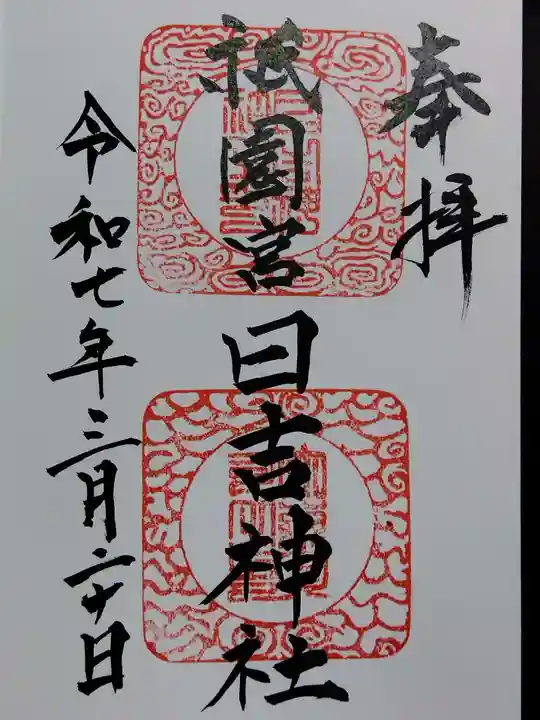 奉拝
祇園宮
日吉神社
令和七年三月二十日